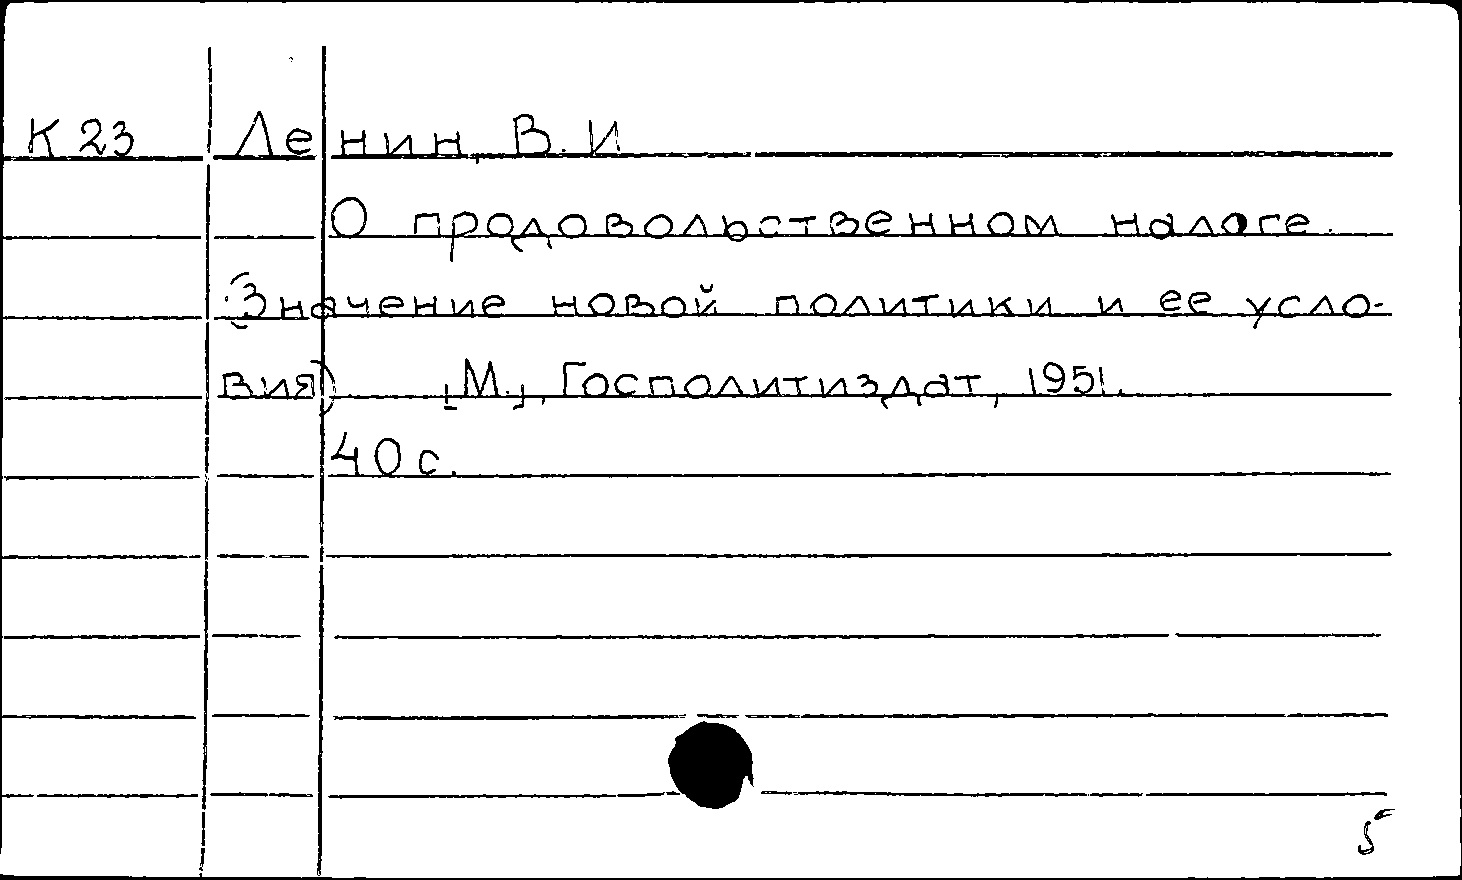 К 23 Ленин, В. И
О продовольственном налоге.
(Значение новой политики и ее усло-
вия) [М.], Госполитиздат, 1951.
40 с.
5